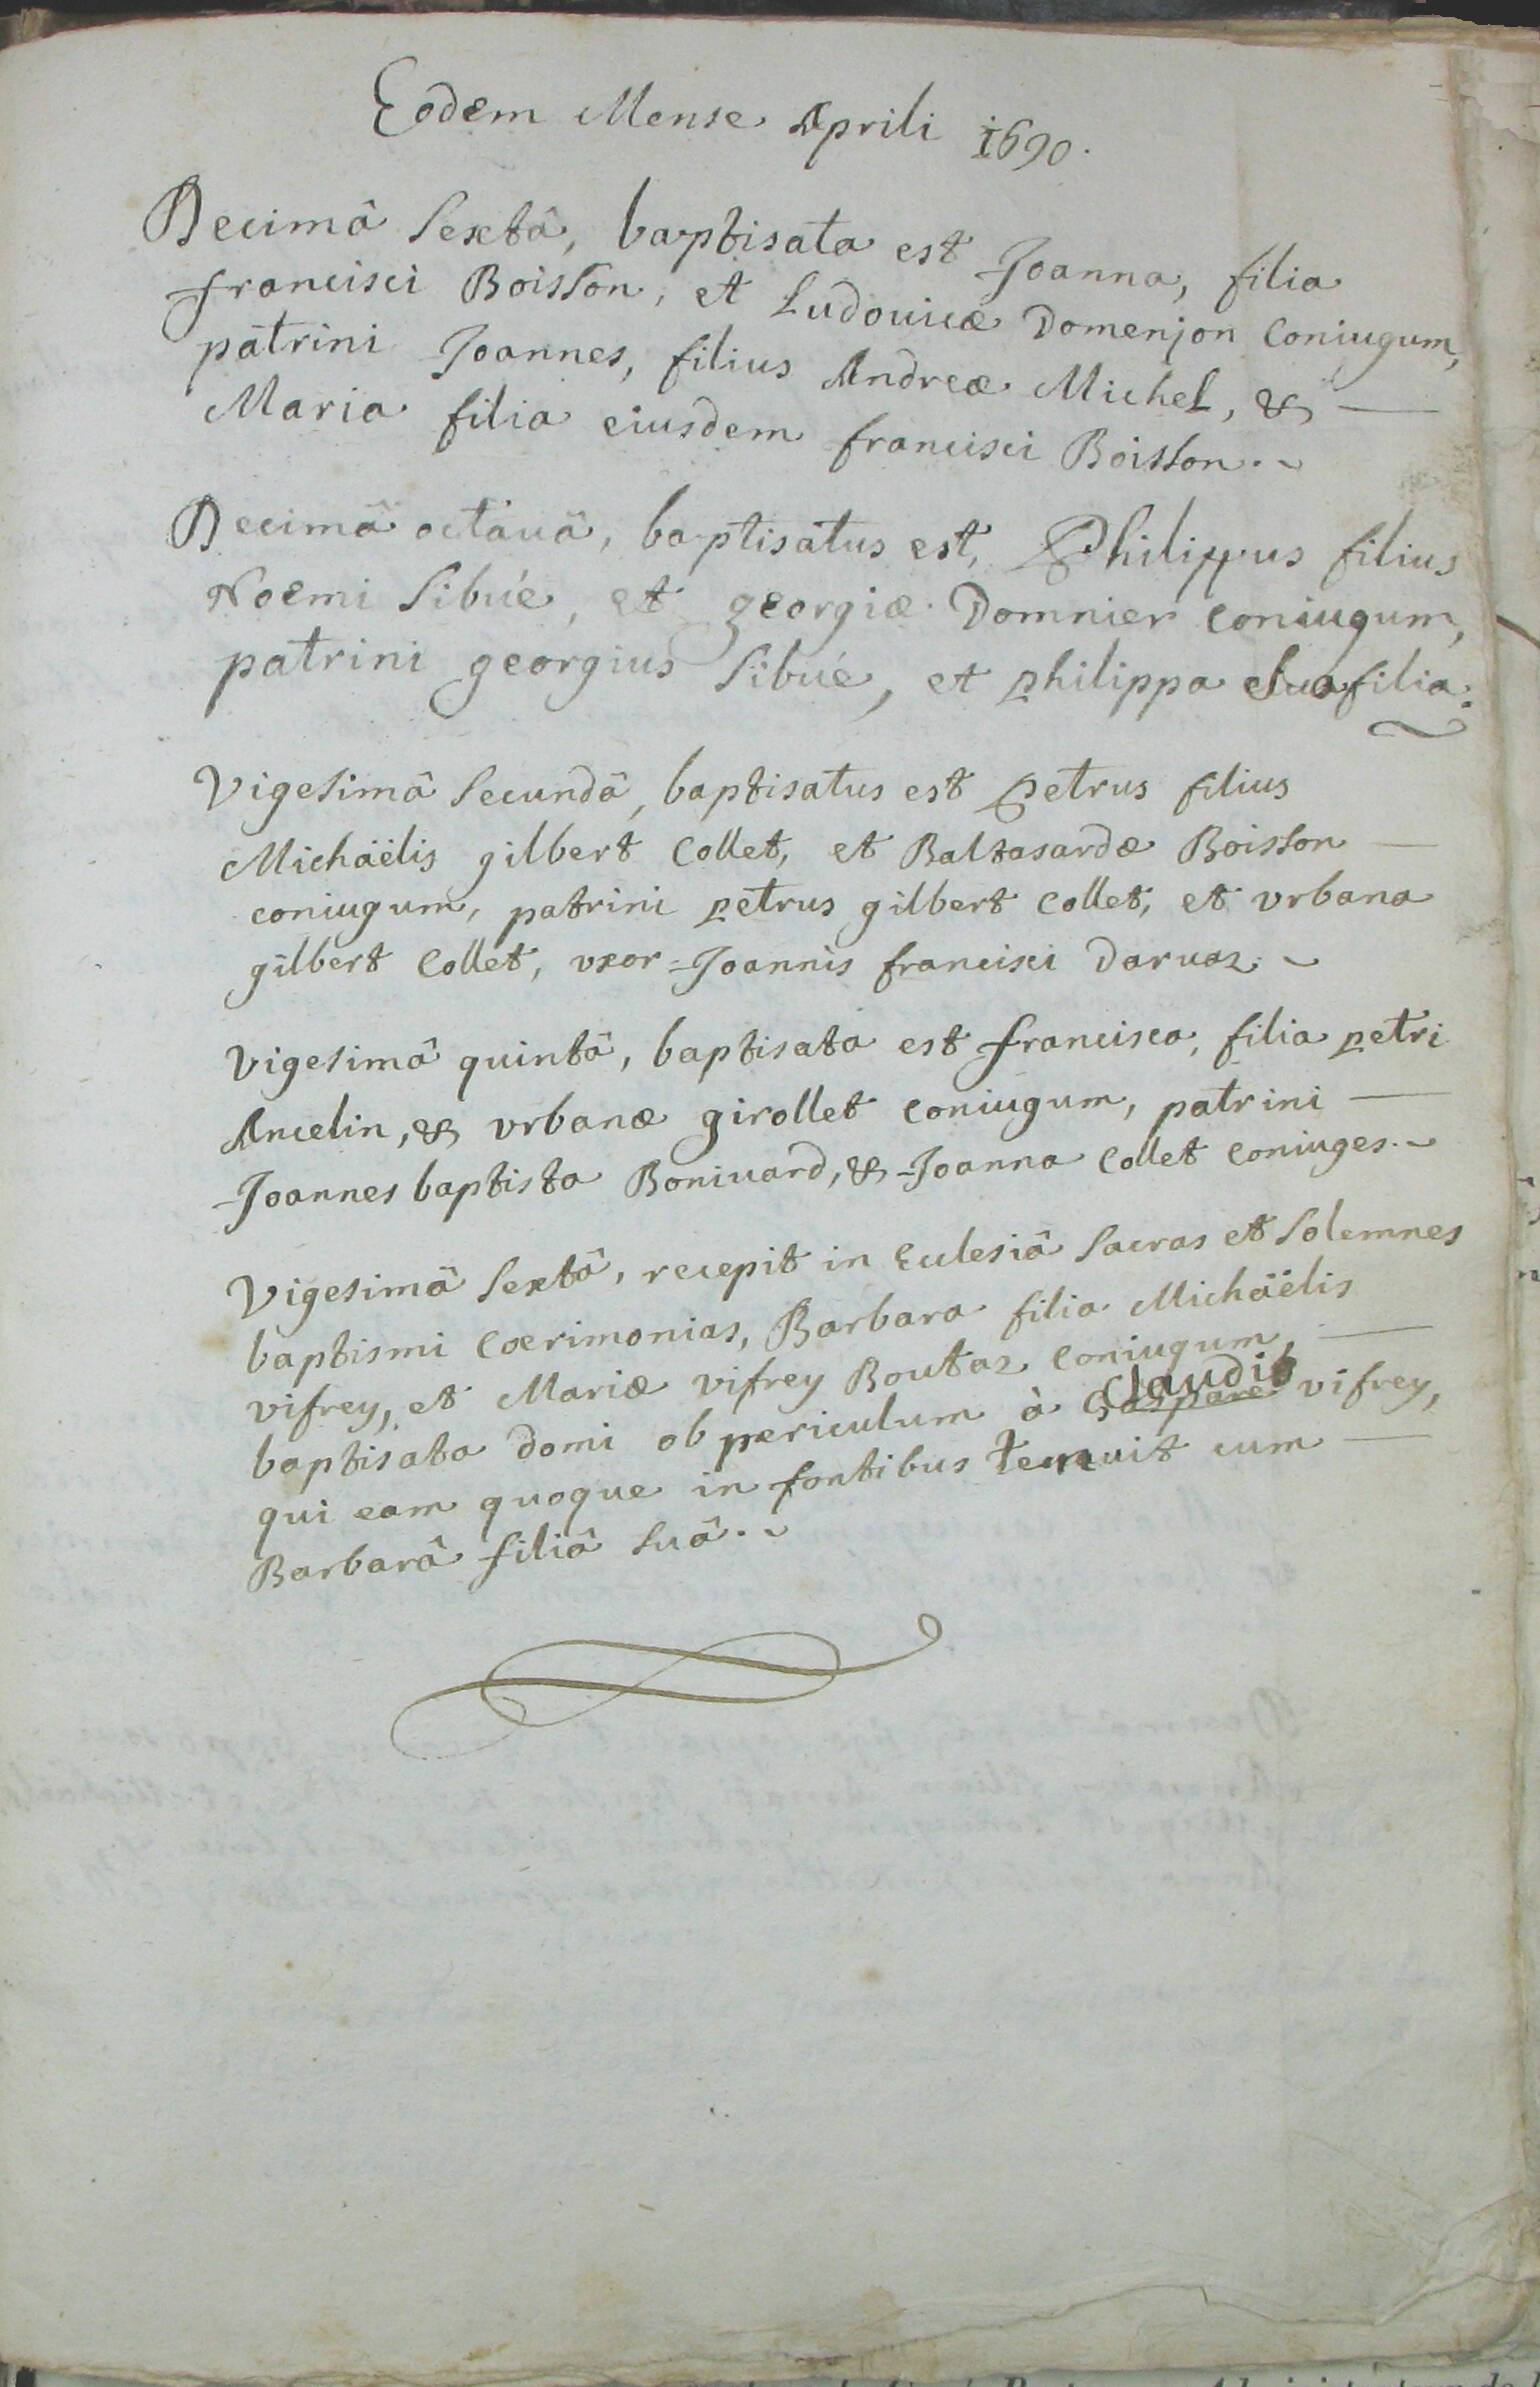 Eodem Mense Aprili 1690.
Decimâ Sextâ, baptisata est Joanna, filia
francisci Boisson, et Ludouicæ Domenjon Coniugum,
patrini Joannes, filius Andreæ Michel, &
Maria filia eiusdem francisci Boisson.
Decimâ octauâ, baptisatus est, Philippus filius
Noemi Sibüe, et georgiæ Domnier coniugum,
patrini georgius Sibüe, et philippa sua filia.
Vigesimâ Secundâ, baptisatus est Petrus filius
Michaëlis gilbert Collet, et Baltasardæ Boisson
coniugum, patrini petrus gilbert Collet, et vrbana
gilbert Collet, vxor Joannis francisci Daruas.
Vigesimâ quintâ, baptisata est francisca, filia petri
Ancelin, & vrbanæ girollet coniugum, patrini
Joannes baptista Boniuard, & Joanna Collet coniuges.
Vigesimâ Sextâ, recepit in Ecclesiâ Sacras et Solemnes
baptismi Cœrimonias, Barbara filia Michaëlis
vifrey, et Mariæ vifrey Boutas coniugum,
baptisata domi ob periculum à Gaspare Claudio vifrey,
qui eam quoque in fontibus tenuit cum
Barbarâ filiâ Suâ.